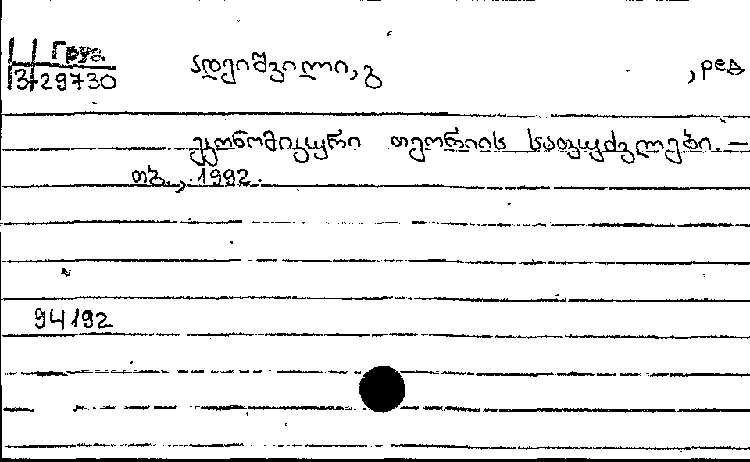 Груз.
3/29730
ადეიშვილი, გ , ред
ეკონომიკური თეორიის საფუძვლები. —
თბ., 1992.
94192